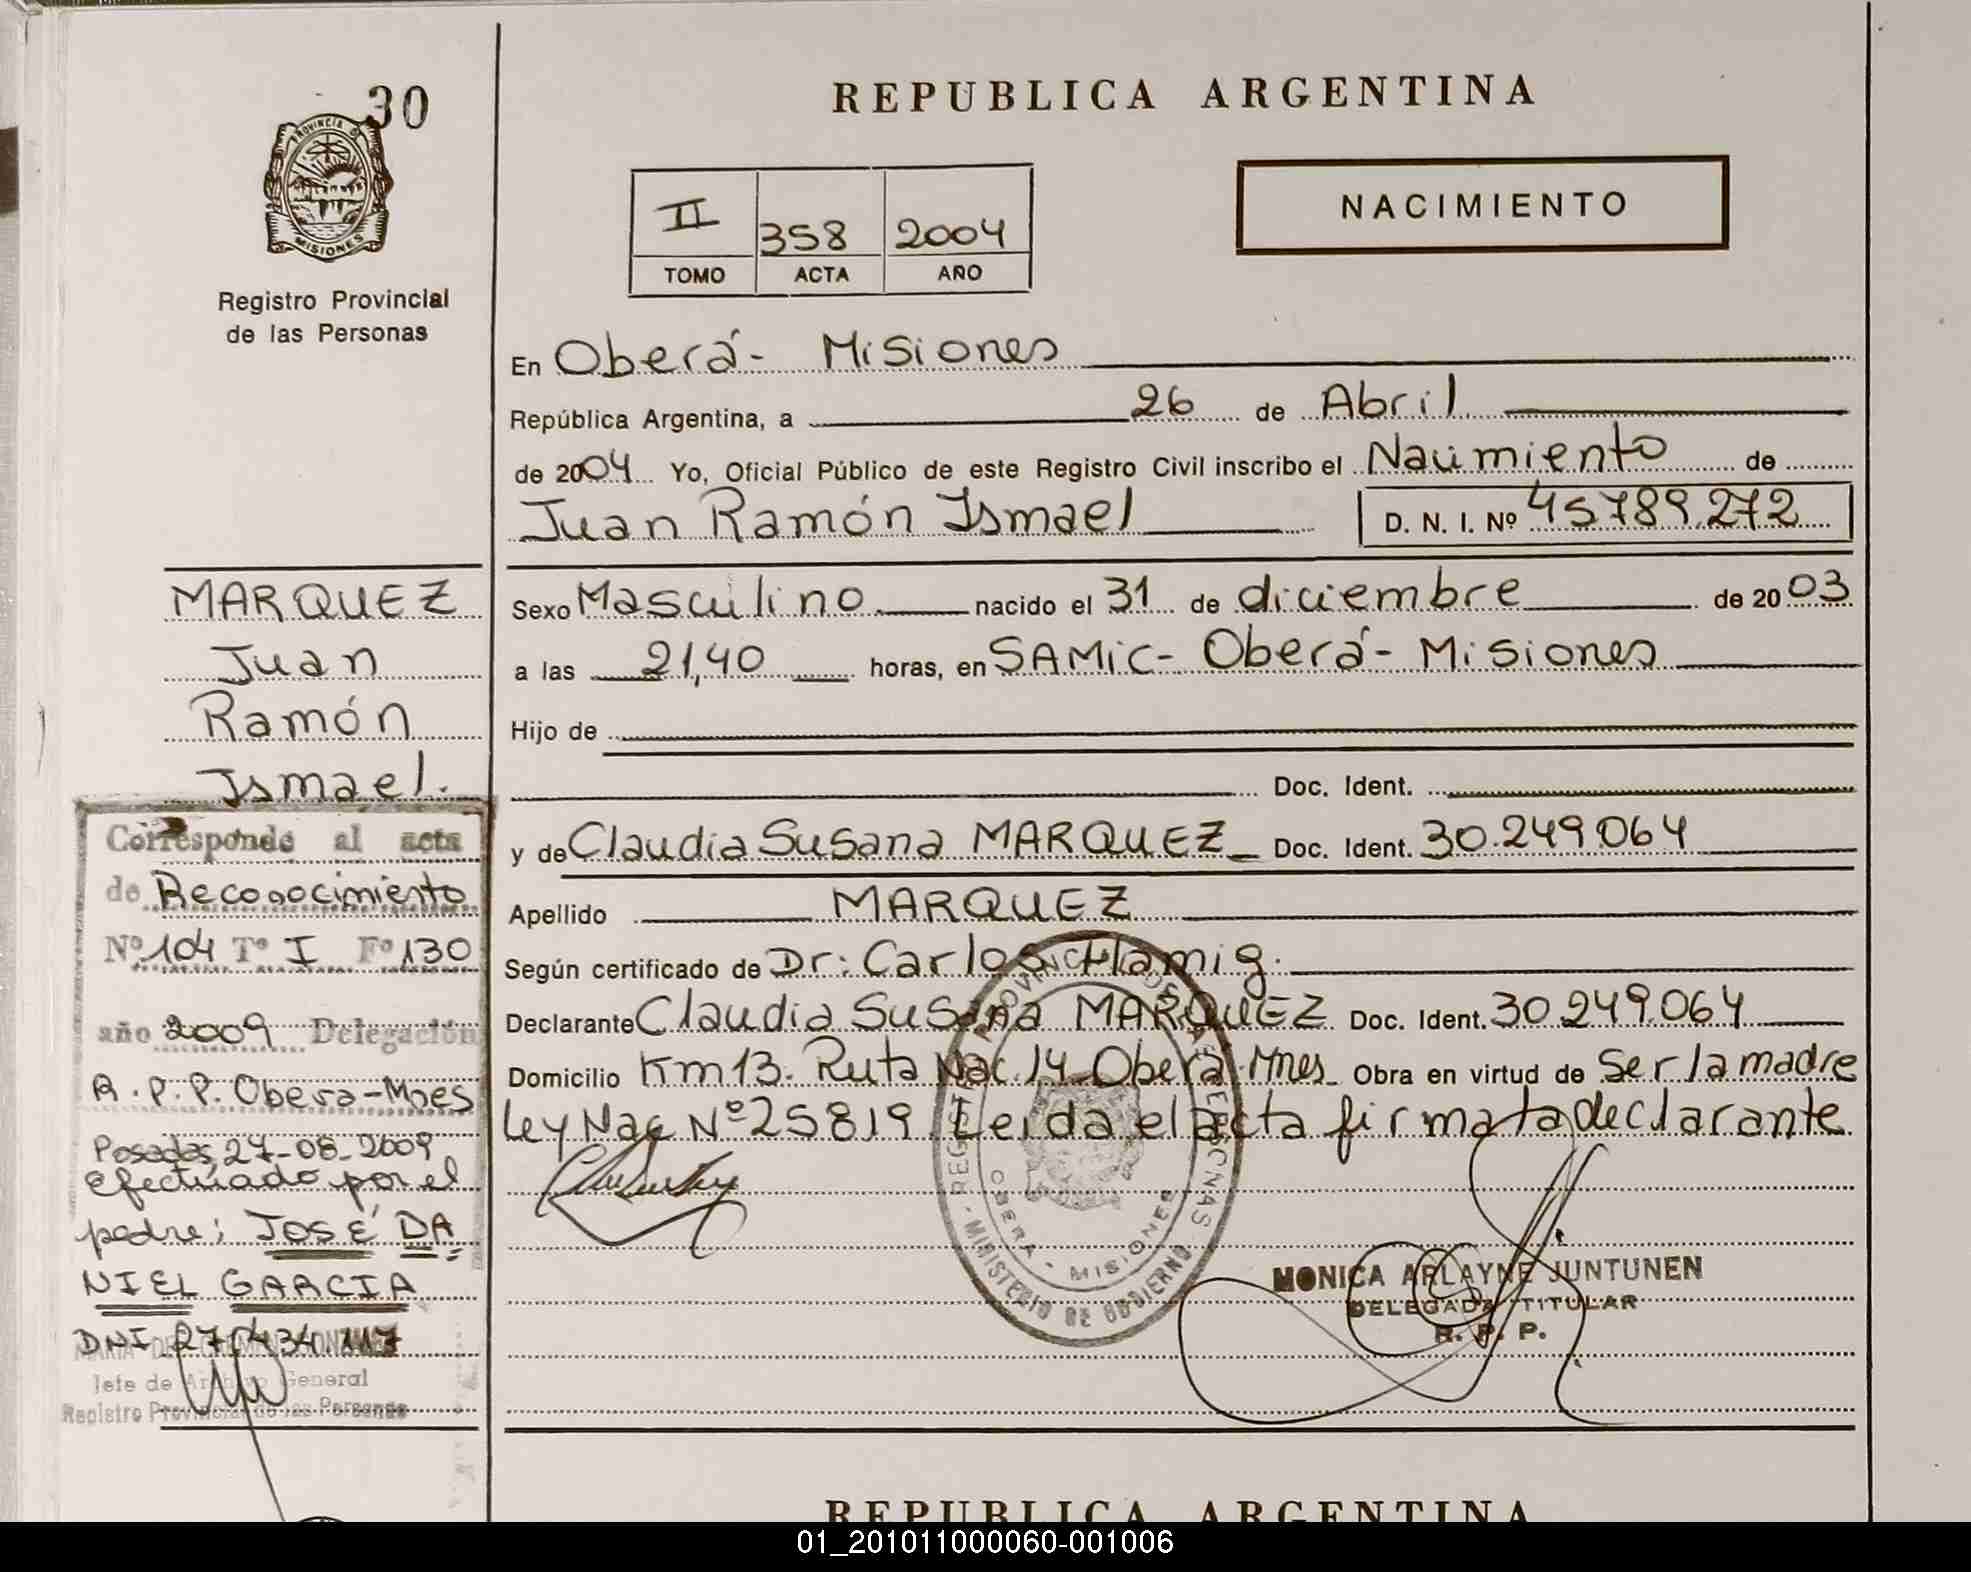 30
PROVINCIA DE
MISIONES
Registro Provincial
de las Personas
REPUBLICA ARGENTINA
II 358 2004
TOMO ACTA AÑO
NACIMIENTO
En Oberá- Misiones
República Argentina, a 26 de Abril
de 2004 Yo, Oficial Público de este Registro Civil inscribo el Nacimiento de
Juan Ramón Ismael D. N. I. Nº 45789.272
Sexo Masculino nacido el 31 de diciembre de 2003
a las 21,40 horas, en SAMiC- Oberá- Misiones
Hijo de
Doc. Ident.
y de Claudia Susana MARQUEZ Doc. Ident. 30.249.064
Apellido MARQUEZ
Según certificado de Dr: Carlos Flamig.
Declarante Claudia Susana MARQUEZ Doc. Ident. 30.249.064
Domicilio Km 13. Ruta Nac. 14 Oberá-Mnes Obra en virtud de Ser la madre
Ley Nac Nº 25819. Leída el acta firma ta declarante
MARQUEZ
Juan
Ramón
Ismael.
Corresponde al acta
de Reconocimiento
Nº 104 Tº I Fº 130
año 2009 Delegación
R.P.P. Obera-Mnes
Posadas 27-08-2009
Efectuado por el
padre; JOSÉ DA
NIEL GARCIA
DNI 27.434.117
Jefe de Archivo General
Registro Provincial de las Personas
MINISTERIO DE GOBIERNO
OBERA - MISIONES
MONICA ARLAYNE JUNTUNEN
DELEGADA TITULAR
R. P. P.
REPUBLICA ARGENTINA
01_201011000060-001006